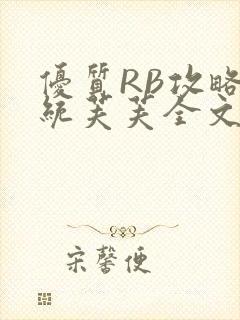 優質RB攻略
統芙芙全文
宋馨便